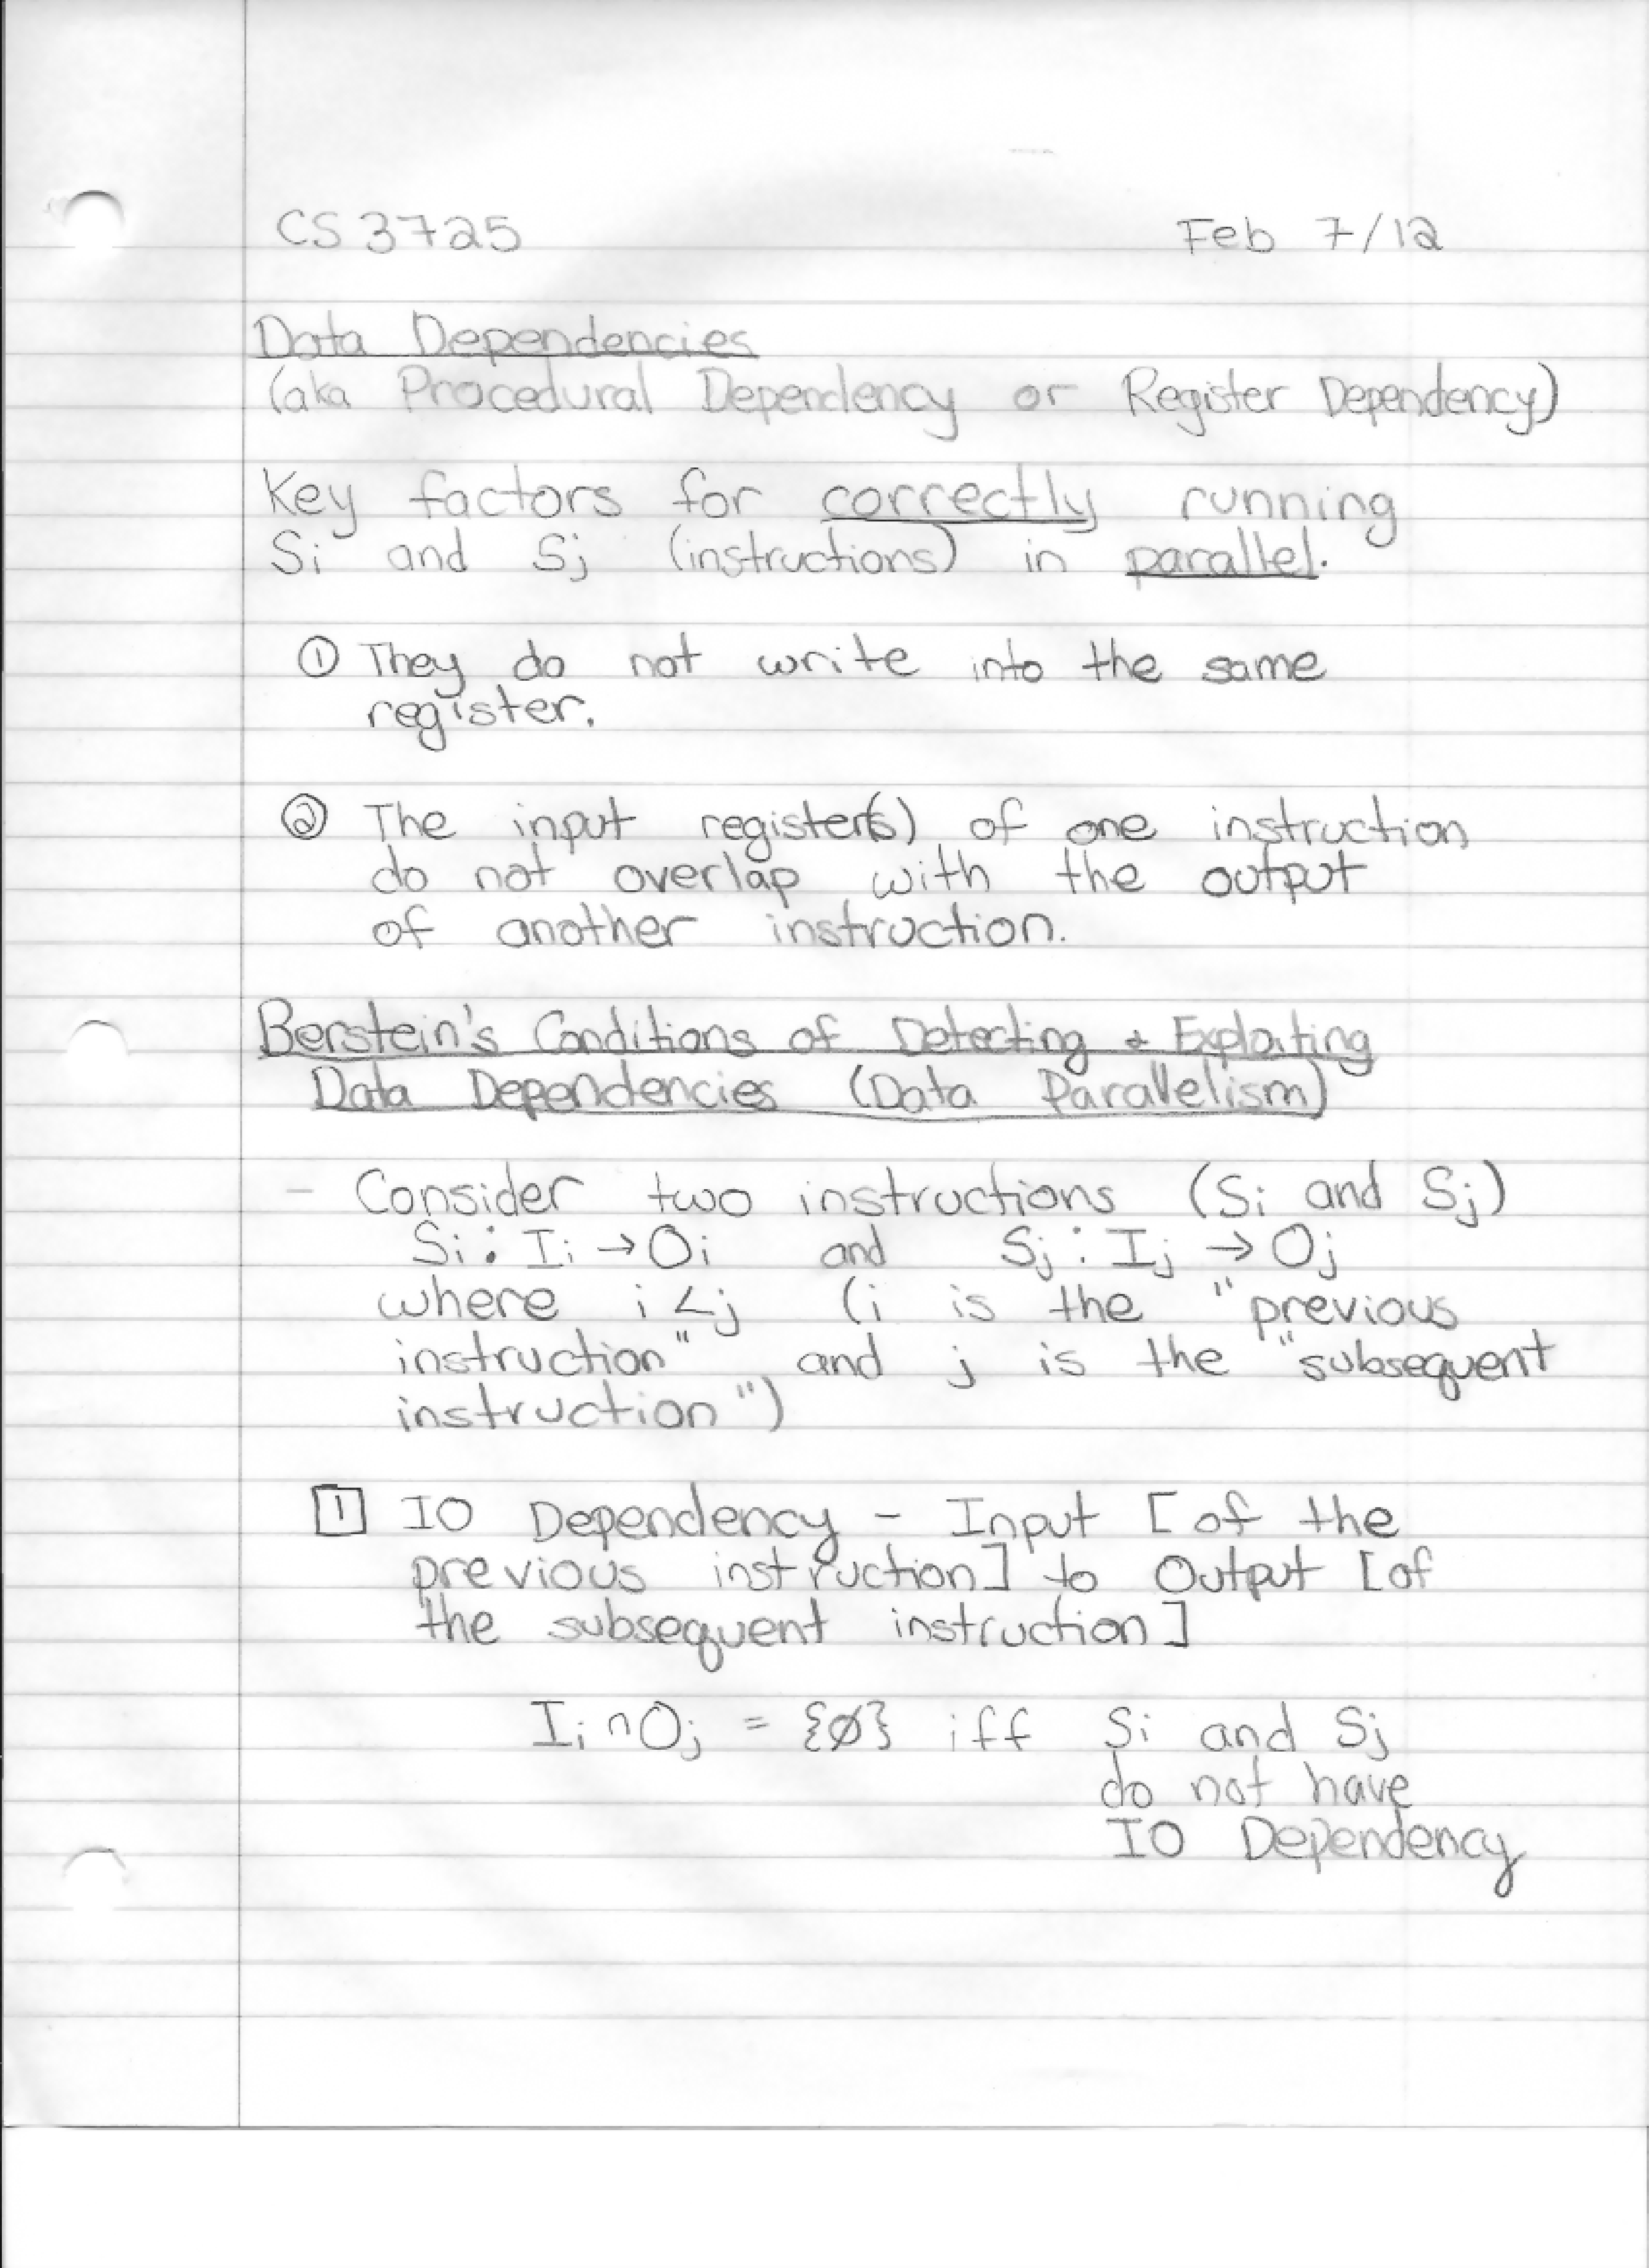 CS 3725 Feb 7/12
Data Dependencies
(aka Procedural Dependency or Register Dependency)
Key factors for correctly running
Si and Sj (instructions) in parallel.
① They do not write into the same
register.
② The input register(s) of one instruction
do not overlap with the output
of another instruction.
Berstein's Conditions of Detecting & Exploiting
Data Dependencies (Data Parallelism)
- Consider two instructions (Si and Sj)
Si : Ii → Oi and Sj : Ij → Oj
where i < j (i is the "previous
instruction" and j is the "subsequent
instruction")
[1] IO Dependency - Input [of the
previous instruction] to Output [of
the subsequent instruction]
Ii ∩ Oj = {ø} iff Si and Sj
do not have
IO Dependency